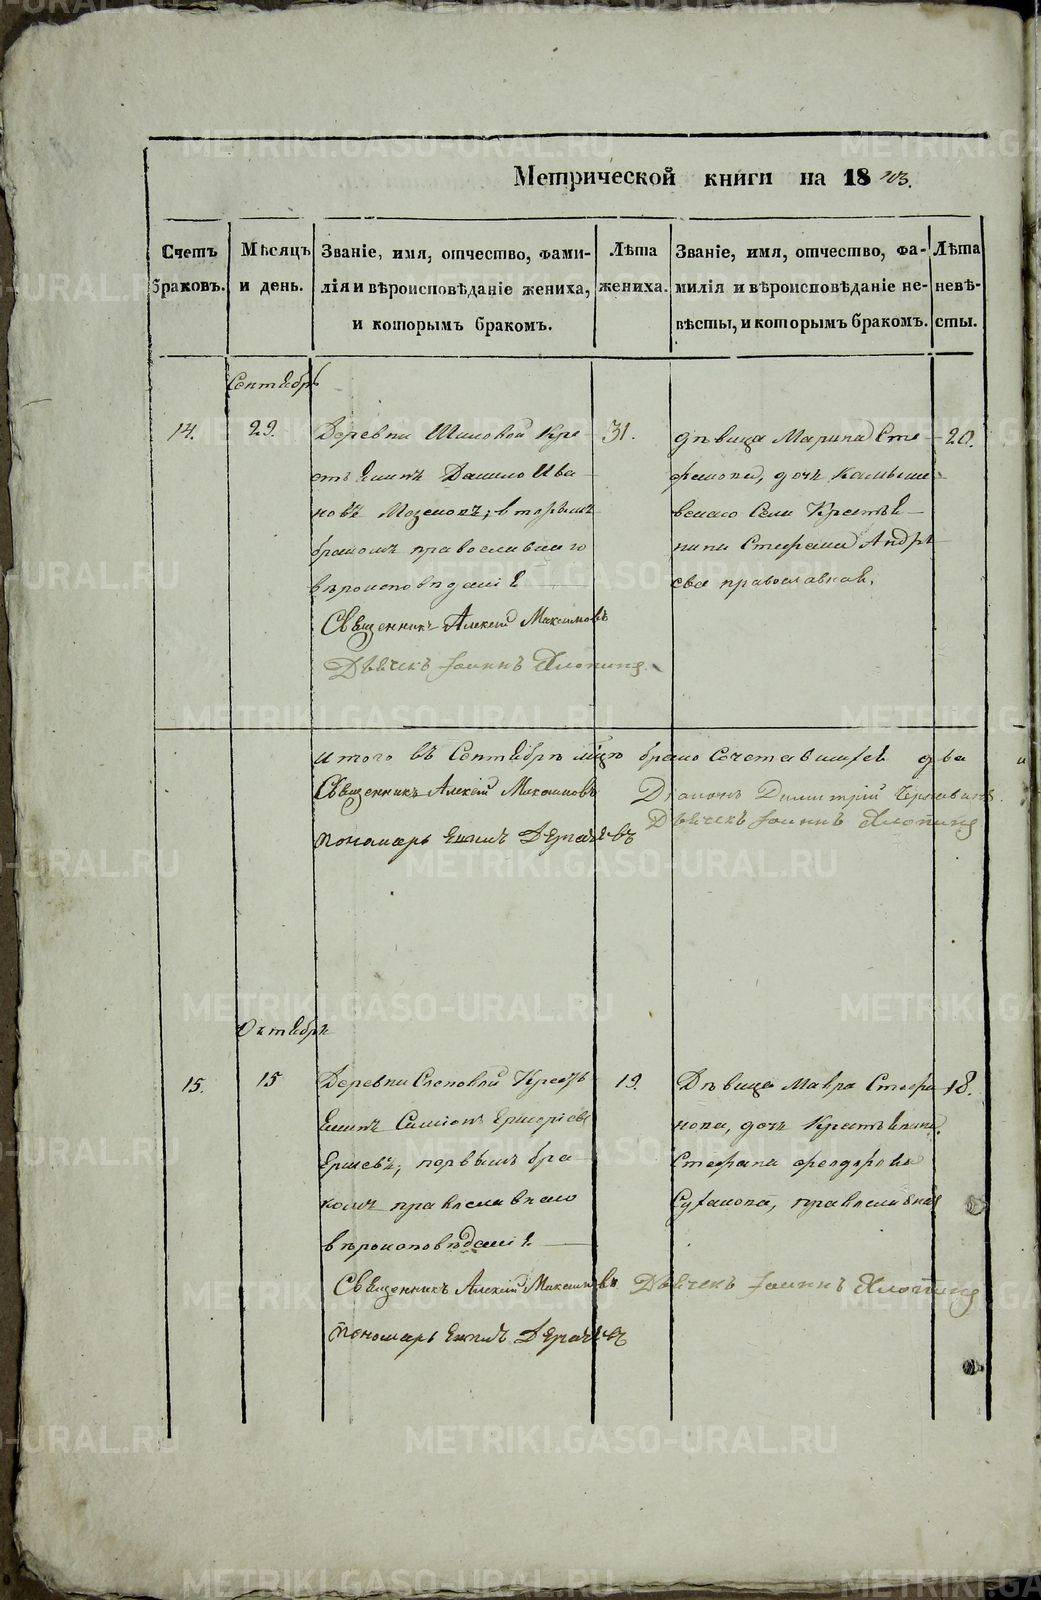 Метрической книги на 18
Счетъ браковъ.
Мѣсяцъ и день.
Званіе, имя, отчество, фами-
лія и вѣроисповѣданіе жениха,
и которымъ бракомъ.
Лѣта жениха.
Званіе, имя, отчество, фа-
милія и вѣроисповѣданіе не-
вѣсты, и которымъ бракомъ.
Лѣта невѣ-
сты.
Сентябрь
14.
29.
Деревни Шиловой Кре
стьянинъ Данило Ива
новъ; вторымъ
бракомъ православнаго
вѣроисповѣданія
Священникъ Алексій Максимовъ
Дьячекъ Іоаннъ
31.
дѣвица Марина Сте
фанова, дочь
Села Крестья
нина Стефана Андре
ева православнаго.
20.
итого въ Сентябрѣ мцѣ бракосочетавшихся два
Священникъ Алексій Максимовъ
Діаконъ Димитрій
Дьячекъ Іоаннъ
пономарь
Октябрь
15.
15
Деревни Кресть
янинъ Симіонъ
Ершевъ; первымъ бра
комъ православнаго
вѣроисповѣданія
Священникъ Алексій Максимовъ
Дьячекъ Іоаннъ
пономарь
19.
Дѣвица Мавра Стефа
нова, дочь Крестьянина
Стефана Феодорова
православная
18.
METRIKI.GASO-URAL.RU